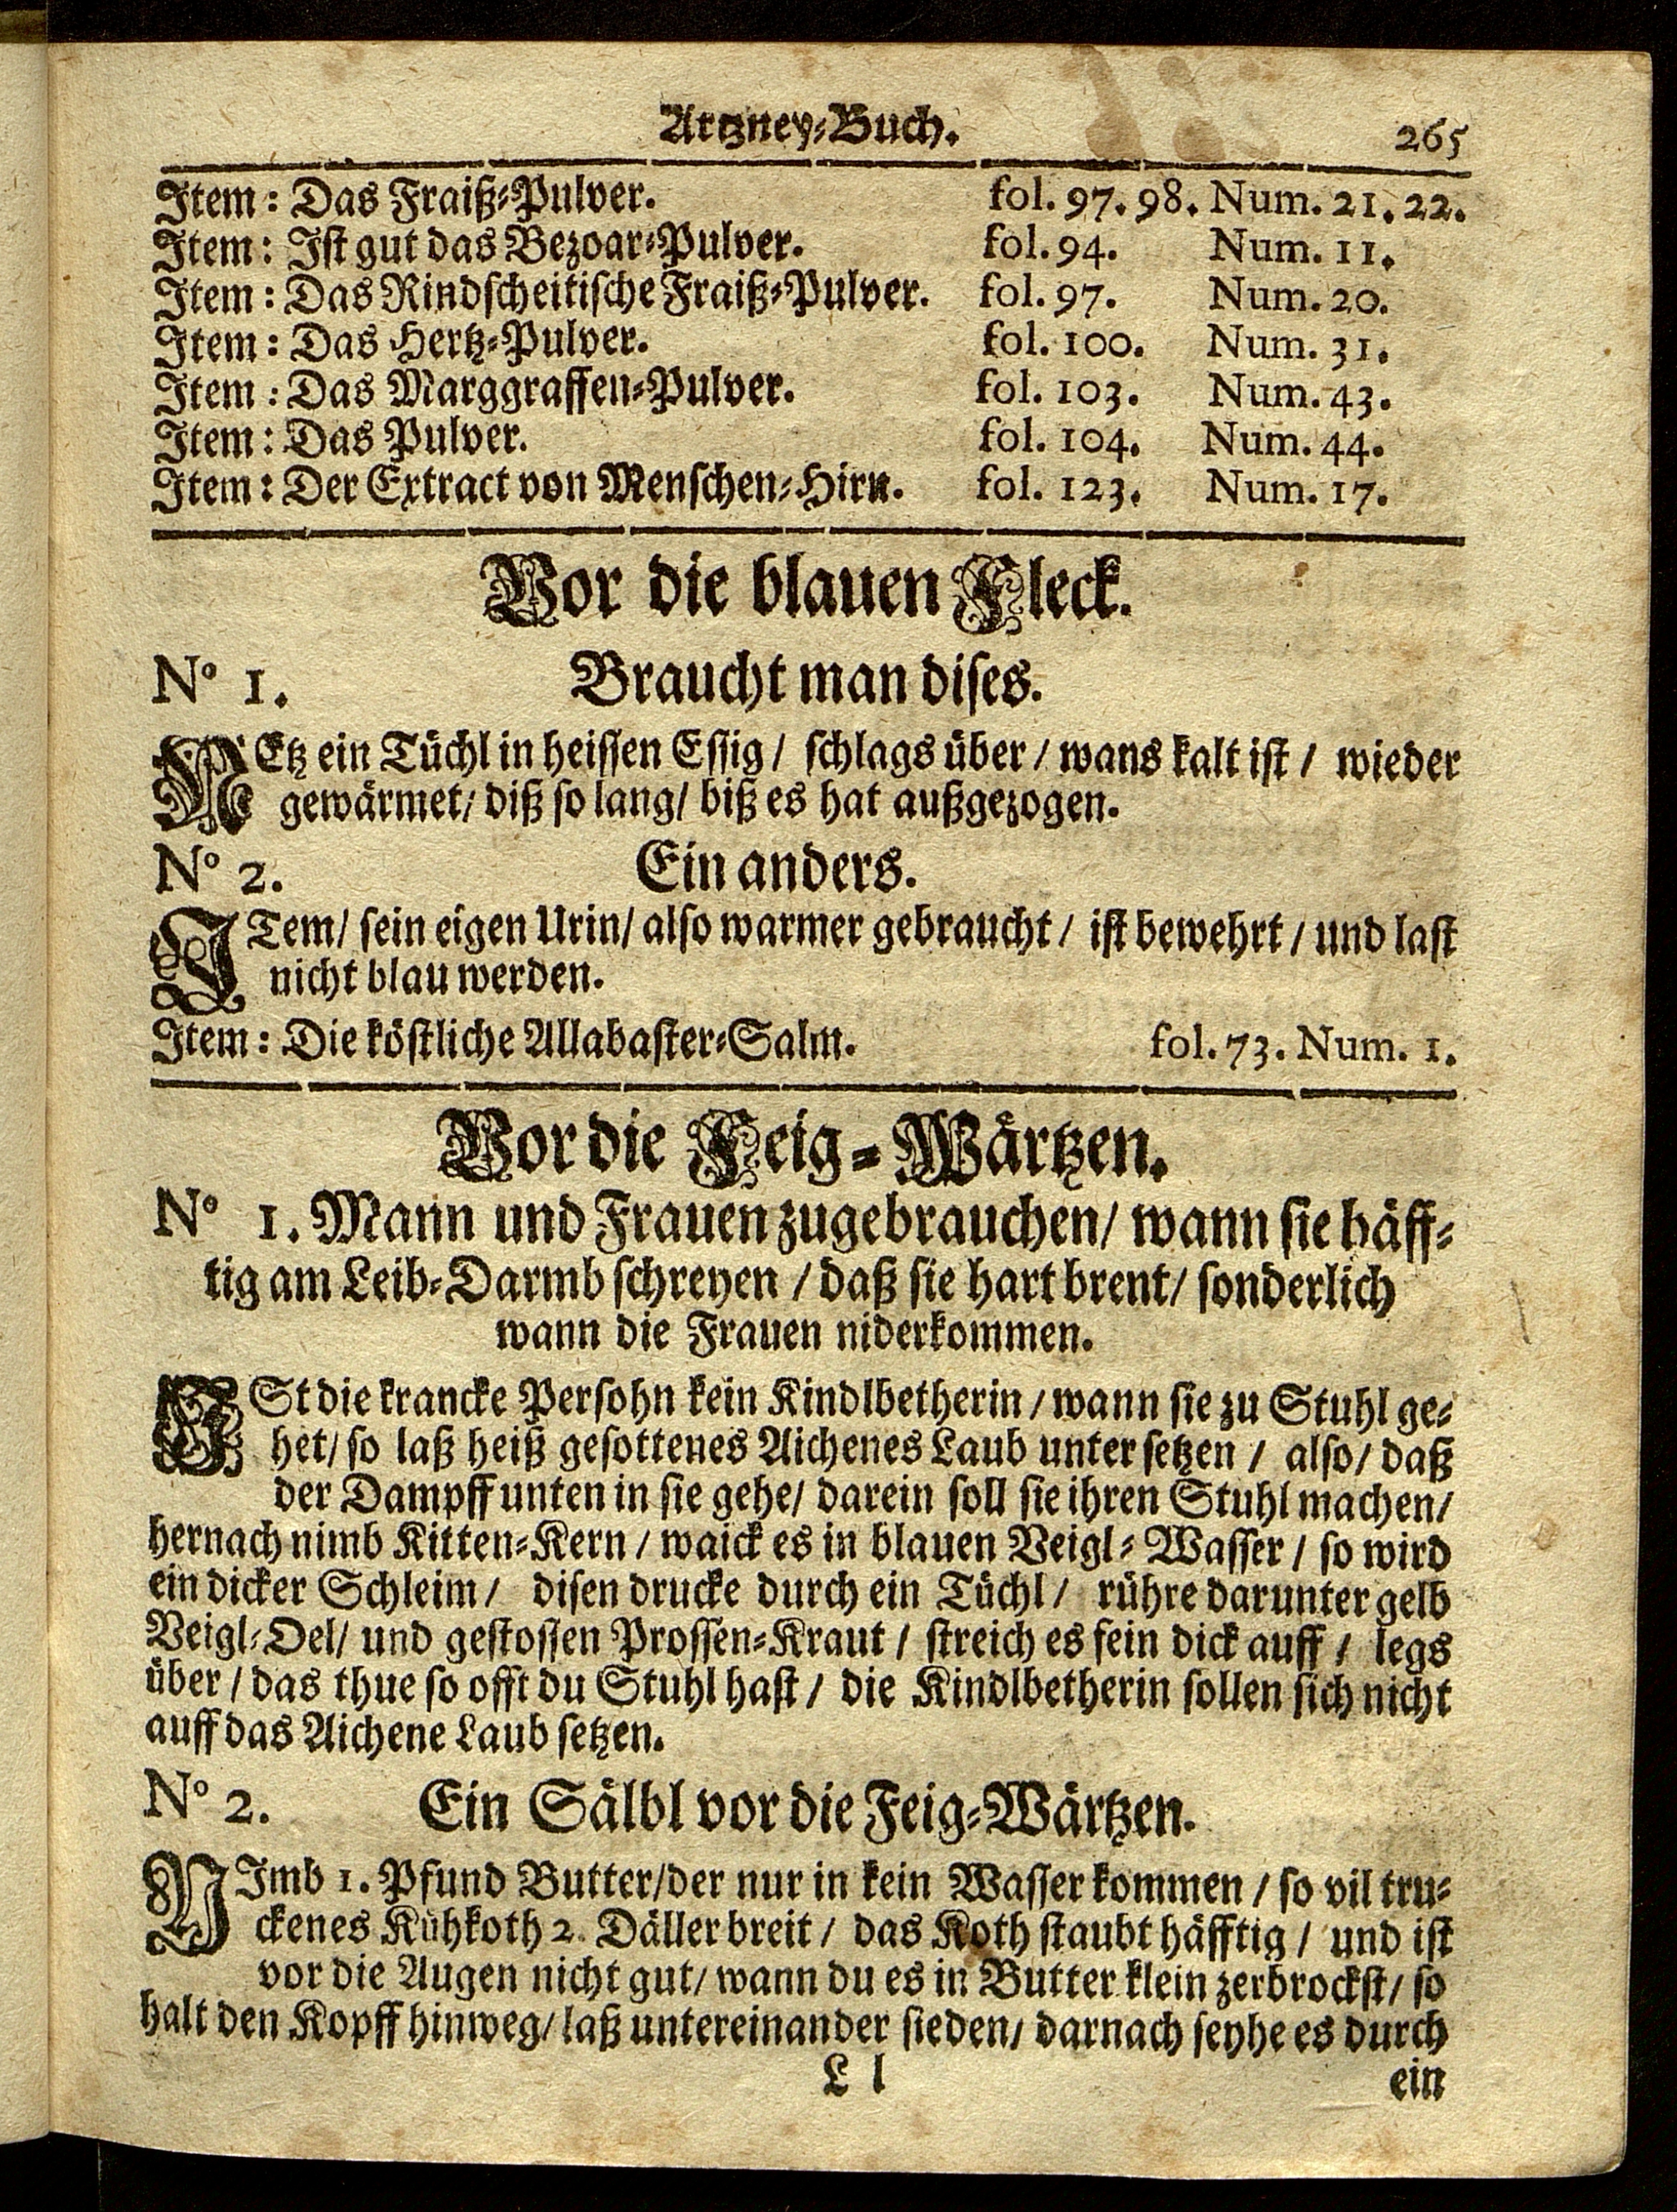 Artzney-Buch. 265
Item: Das Fraiß-Pulver. fol. 97. 98. Num. 21. 22.
Item: Ist gut das Bezoar-Pulver. fol. 94. Num. 11.
Item: Das Rindscheitische Fraiß-Pulver. fol. 97. Num. 20.
Item: Das Hertz-Pulver. fol. 100. Num. 31.
Item: Das Marggraffen-Pulver. fol. 103. Num. 43.
Item: Das Pulver. fol. 104. Num. 44.
Item: Der Extract von Menschen-Hirn. fol. 123. Num. 17.
Vor die blauen Fleck.
N° 1. Braucht man dises.
NEtz ein Tüchl in heissen Essig / schlags über / wans kalt ist / wieder
gewärmet / diß so lang / biß es hat außgezogen.
N° 2. Ein anders.
ITem / sein eigen Urin / also warmer gebraucht / ist bewehrt / und last
nicht blau werden.
Item: Die köstliche Allabaster-Salm. fol. 73. Num. 1.
Vor die Feig-Wärtzen.
N° 1. Mann und Frauen zugebrauchen / wann sie häff-
tig am Leib-Darmb schreyen / daß sie hart brent / sonderlich
wann die Frauen niderkommen.
ISt die krancke Persohn kein Kindlbetherin / wann sie zu Stuhl ge-
het / so laß heiß gesottenes Aichenes Laub unter setzen / also / daß
der Dampff unten in sie gehe / darein soll sie ihren Stuhl machen /
hernach nimb Kitten-Kern / waick es in blauen Veigl-Wasser / so wird
ein dicker Schleim / disen drucke durch ein Tüchl / rühre darunter gelb
Veigl-Oel / und gestossen Prossen-Kraut / streich es fein dick auff / legs
über / das thue so offt du Stuhl hast / die Kindlbetherin sollen sich nicht
auff das Aichene Laub setzen.
N° 2. Ein Sälbl vor die Feig-Wärtzen.
NImb 1. Pfund Butter / der nur in kein Wasser kommen / so vil tru-
ckenes Kühkoth 2. Däller breit / das Koth staubt häfftig / und ist
vor die Augen nicht gut / wann du es in Butter klein zerbrockst / so
halt den Kopff hinweg / laß untereinander sieden / darnach seyhe es durch
L l ein